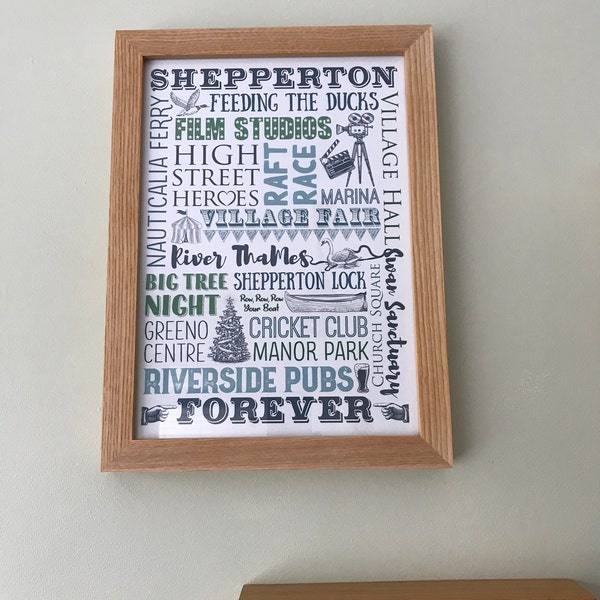 SHEPPERTON
FEEDING THE DUCKS
NAUTICALIA FERRY
VILLAGE HALL
FILM STUDIOS
HIGH
STREET
HEROES
RAFT
RACE
MARINA
VILLAGE FAIR
River Thames
BIG TREE
NIGHT
SHEPPERTON LOCK
Row, Row, Row
Your Boat
Swan Sanctuary
CHURCH SQUARE
GREENO
CENTRE
CRICKET CLUB
MANOR PARK
RIVERSIDE PUBS
FOREVER